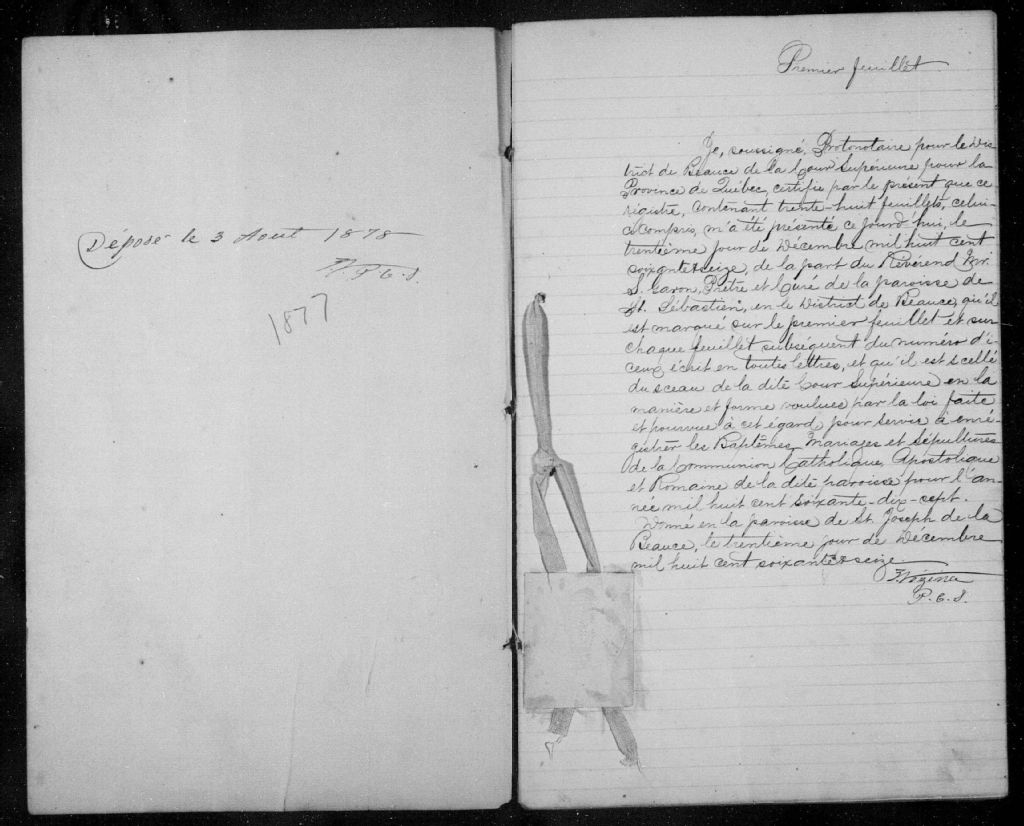 Déposé le 3 Aout 1878
P. C. S.
1877
Premier feuillet
Je, soussigné, Protonotaire pour le Dis
trict de Beauce de la Cour Supérieure pour la
Province de Québec, certifie par le présent que ce
régistre, contenant trente-huit feuillets, celui-
ci compris, m'a été présenté ce jourd'hui, le
trentième jour de Décembre mil huit cent
soixante & seize, de la part du Révérend Mr.
S. Garon, Prêtre et Curé de la paroisse de
St. Sébastien, en le District de Beauce, qu'il
est marqué sur le premier feuillet et sur
chaque feuillet subséquent du numéro d'i-
ceux écrit en toutes lettres, et qu'il est scellé
du sceau de la dite Cour Supérieure en la
manière et forme voulues par la loi faite
et pourvue à cet égard, pour servir à enré-
gistrer les Baptêmes, Mariages et sépultures
de la Communion Catholique, Apostolique
et Romaine de la dite paroisse pour l'an-
née mil huit cent soixante-dix-sept.
Donné en la paroisse de St. Joseph de la
Beauce, le trentième jour de Décembre
mil huit cent soixante & seize
Vézina
P. C. S.